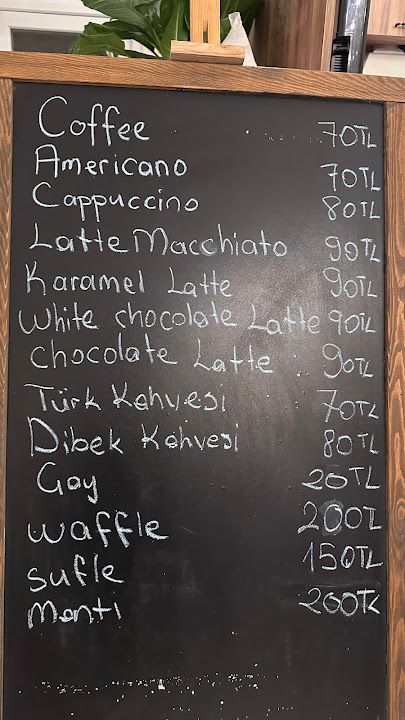 Coffee 70TL
Americano 70TL
Cappuccino 80TL
Latte Macchiato 90TL
Karamel Latte 90TL
White chocolate Latte 90TL
chocolate Latte 90TL
Türk Kahvesi 70TL
Dibek Kahvesi 80TL
Çay 20TL
waffle 200TL
sufle 150TL
Mantı 200TL